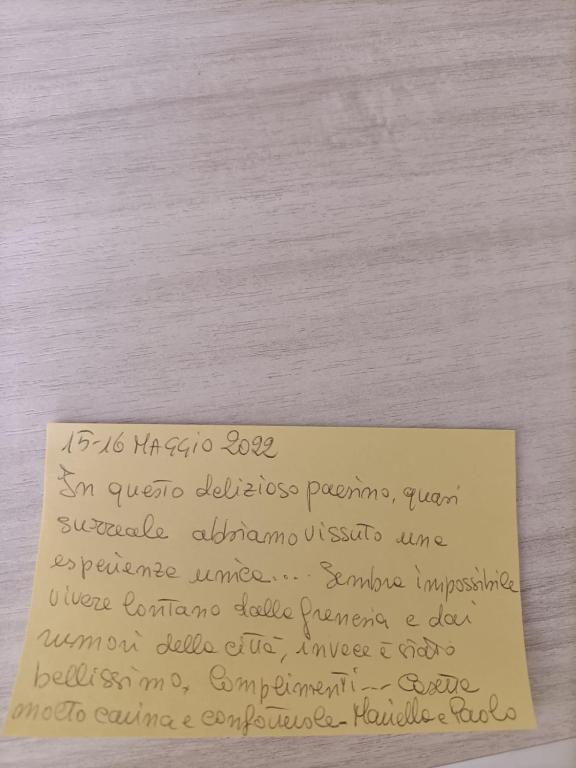 15-16 MAGGIO 2022
In questo delizioso paesino, quasi
surreale abbiamo vissuto una
esperienza unica.... Sembra impossibile
vivere lontano dalla frenesia e dai
rumori della città, invece è stato
bellissimo, Complimenti... Casetta
molto carina e confortevole - Mariella e Paolo